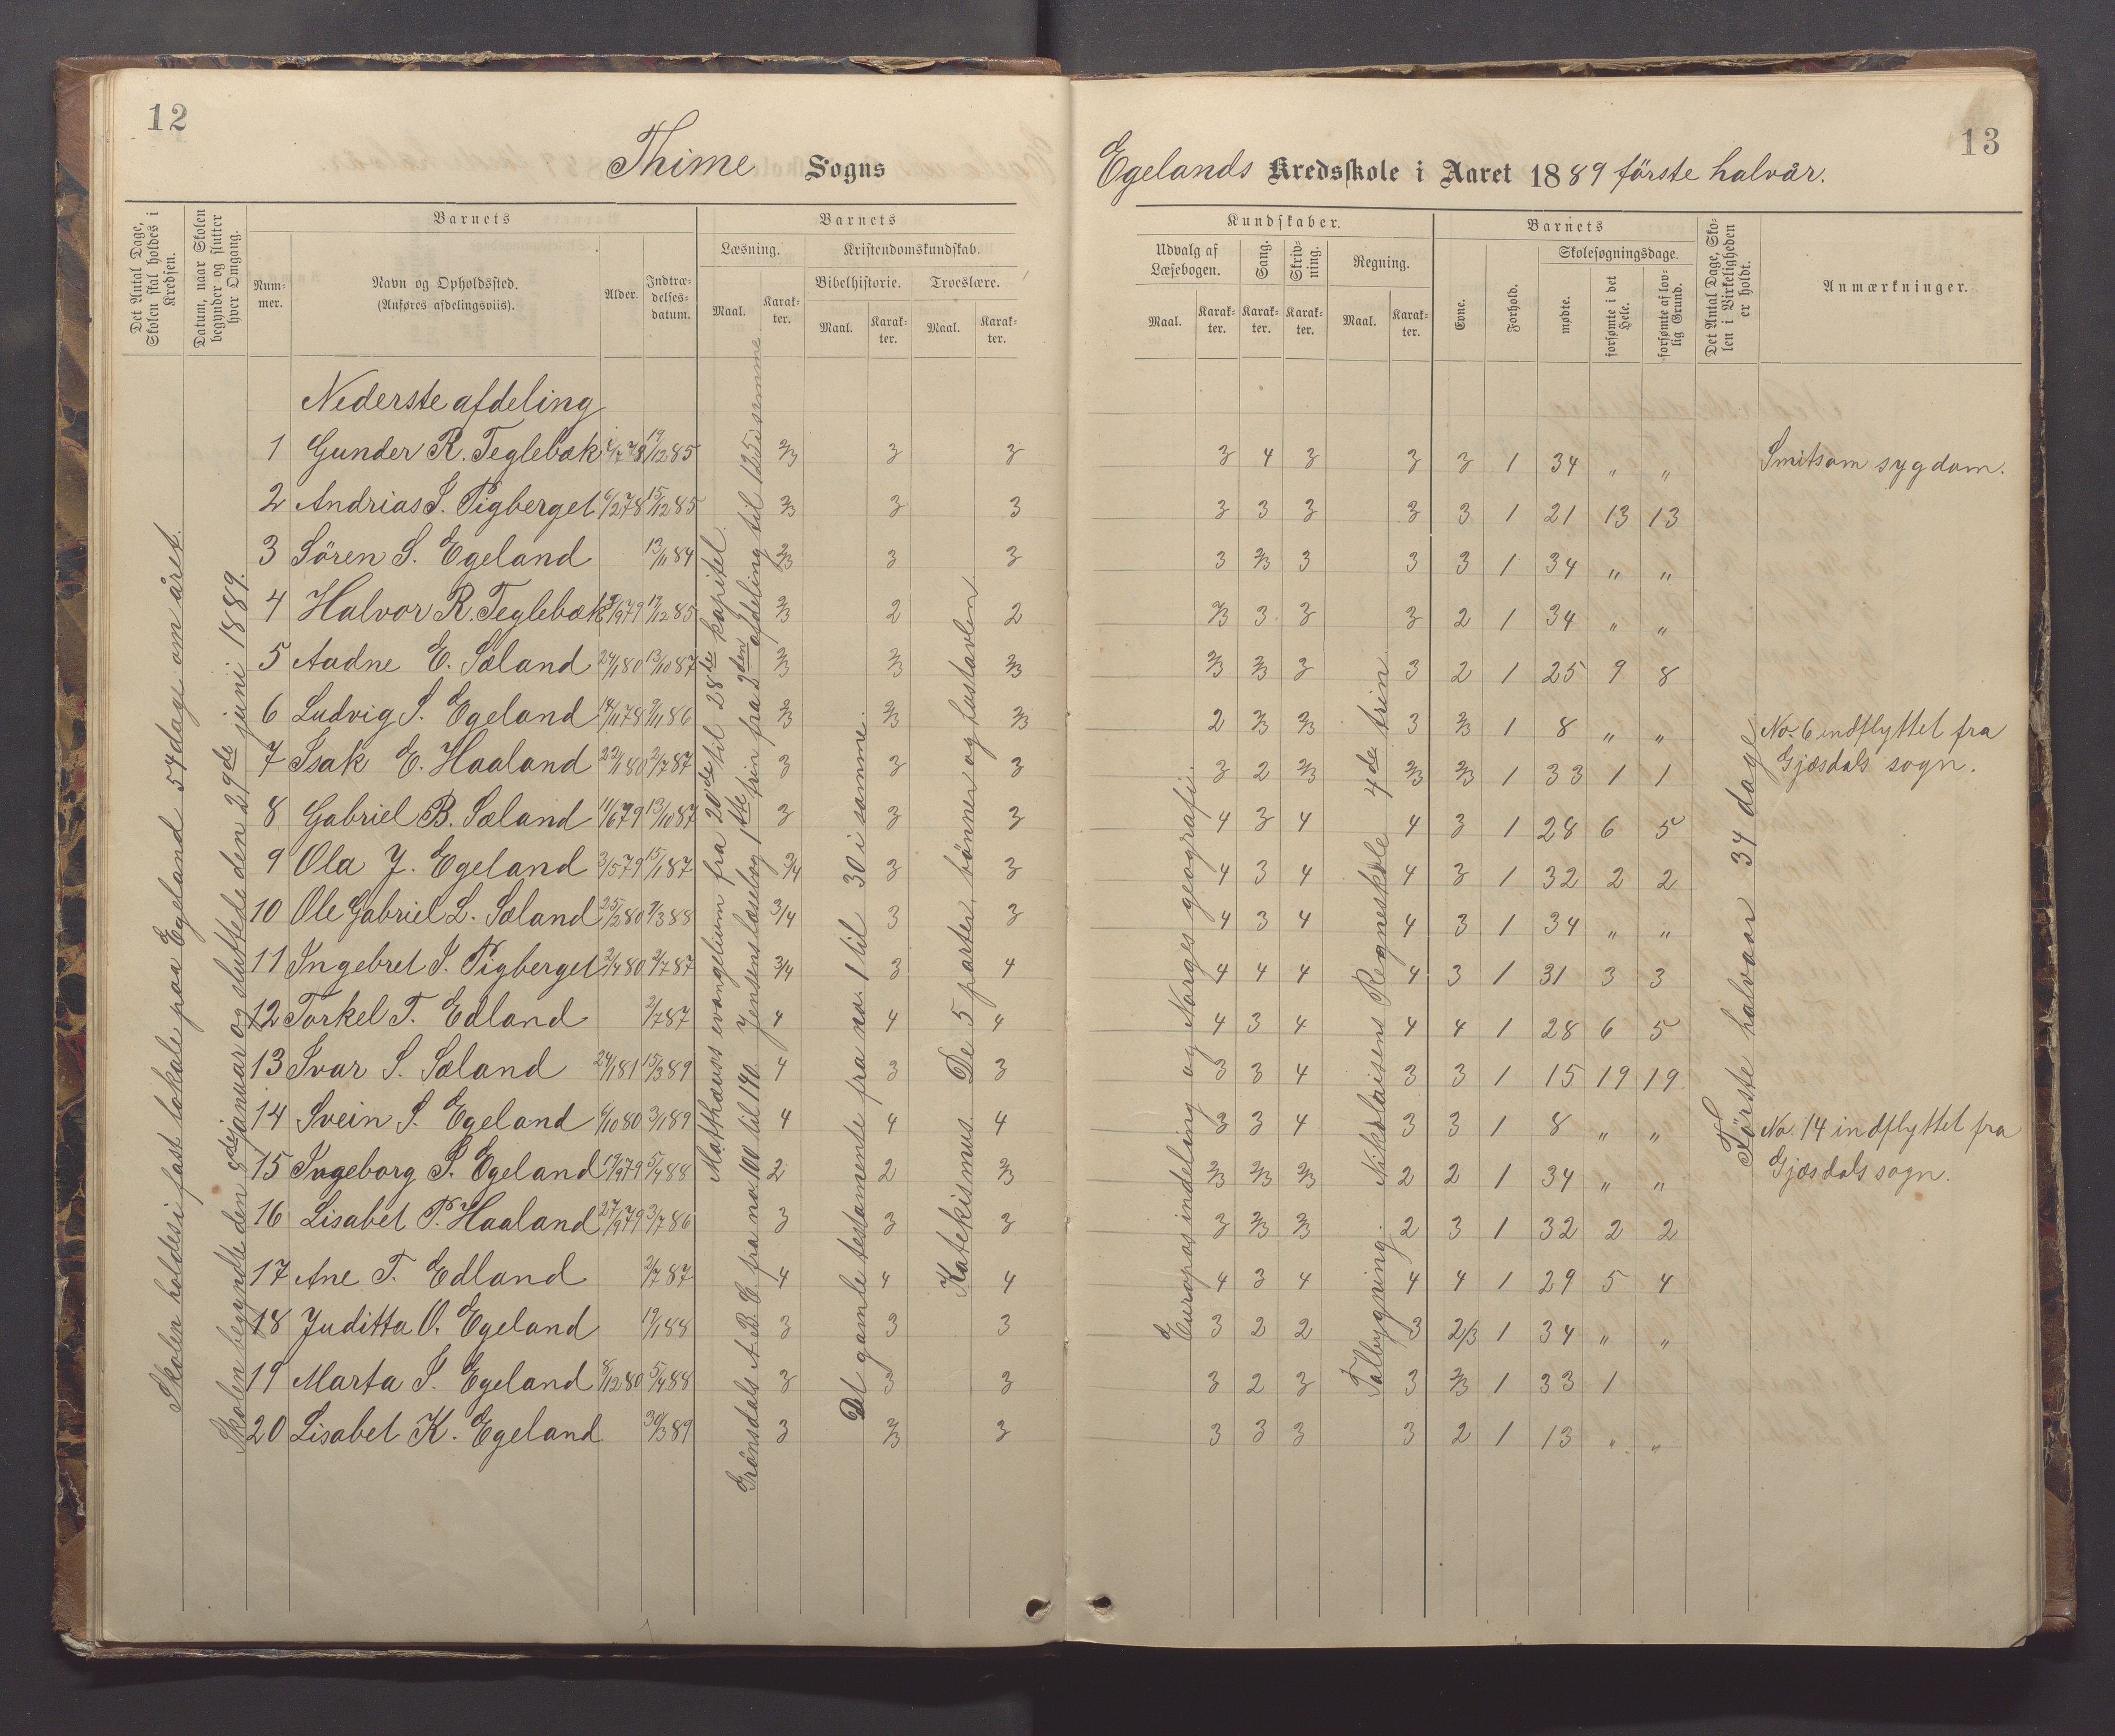 12
Thime Sogns
Det Antal Dage, Skolen skal holdes i Kredsen.
Datum, naar Skolen begynder og slutter hver Omgang.
Barnets
Num-
mer.
Navn og Opholdssted.
(Anføres afdelingsviis).
Alder.
Indtræ-
delses-
datum.
Barnets
Læsning.
Kristendomskundskab.
Bibelhistorie.
Troeslære.
Maal.
Karak-
ter.
Maal.
Karak-
ter.
Maal.
Karak-
ter.
Skolen holdes i fast lokale paa Egeland 57 dage om året.
Skolen begyndte den 8de januar og sluttede den 29de juni 1889.
Matthæus evangelium fra 20de til 28de kapitel.
Grønsdals A.B.C. fra no 100 til 140. Jensens læsebog 1ste trin fra 2den afdeling til 125 i samme
Det gamle testamente fra no. 1 til 30 i samme.
Katekismus. De 5 parter, bönner og hustavlen
Nederste afdeling
1 Gunder R. Teglebæk 19/12 85 2/3 3 3
2 Andrias S. Pigberget 6/2 78 15/12 85 2/3 3 3
3 Sören S. Egeland 13/11 84 2/3 3 3
4 Halvor R. Teglebæk 19/12 85 2/3 2 2
5 Aadne E. Sæland 24/1 80 13/10 87 2/3 2/3 2/3
6 Ludvig S. Egeland 14/11 78 9/11 86 2/3 2/3 2/3
7 Isak E. Haaland 22/11 80 2/7 87 3 3 3
8 Gabriel B. Sæland 11/6 79 13/10 87 3 3 3
9 Ola J. Egeland 3/5 79 15/1 87 3/4 3 3
10 Ole Gabriel L. Sæland 25/2 80 7/3 88 3/4 3 3
11 Ingebret S. Pigberget 2/4 80 2/7 87 3/4 3 4
12 Torkel T. Edland 2/7 87 4 4 4
13 Ivar S. Sæland 24/1 81 15/3 89 4 3 3
14 Svein S. Egeland 6/10 80 3/1 89 4 4 4
15 Ingeborg S. Egeland 19/9 79 5/4 88 2 2 2/3
16 Lisabet P. Haaland 27/9 79 3/7 86 3 3 3
17 Ane T. Edland 2/7 87 4 4 4
18 Juditta O. Egeland 19/1 88 3 3 3
19 Marta S. Egeland 8/12 80 5/4 88 3 3 3
20 Lisabet K. Egeland 30/3 89 3 2/3 3
13
Egelands Kredsskole i Aaret 1889 förste halvår.
Kundskaber.
Udvalg af
Læsebogen.
Sang.
Skriv-
ning.
Regning.
Maal.
Karak-
ter.
Karak-
ter.
Karak-
ter.
Maal.
Karak-
ter.
Barnets
Evne.
Forhold.
Skolesøgningsdage.
mødte.
forsømte i det Hele.
forsømte af lov-
lig Grund.
Det Antal Dage, Sko-
len i Virkeligheden
er holdt.
Anmærkninger.
Europas indeling og Norges geografi.
Talbygning. Nikolaisens Regneskole 4de trin
Förste halvaar 34 dage
3 4 3 3 3 1 34 " " Smitsom sygdom.
3 3 3 3 3 1 21 13 13
3 2/3 3 3 3 1 34 " "
2/3 3 3 3 2 1 34 " "
2/3 2/3 3 3 2 1 25 9 8
2 2/3 2/3 3 2/3 1 8 " " No. 6 indflyttet fra
Gjæsdals sogn.
3 2 2/3 2/3 2/3 1 33 1 1
4 3 4 4 3 1 28 6 5
4 3 4 4 3 1 32 2 2
4 3 4 4 3 1 34 " "
4 4 4 4 3 1 31 3 3
4 3 4 4 4 1 28 6 5
3 3 4 3 3 1 15 19 19
3 3 4 3 3 1 8 " " No. 14 indflyttet fra
Gjæsdals sogn.
2/3 2/3 2/3 2 2 1 34 " "
3 2/3 2/3 2 3 1 32 2 2
4 3 4 4 4 1 29 5 4
3 2 2 3 2/3 1 34 " "
3 2 3 3 2/3 1 33 1
3 3 3 3 2 1 13 " "